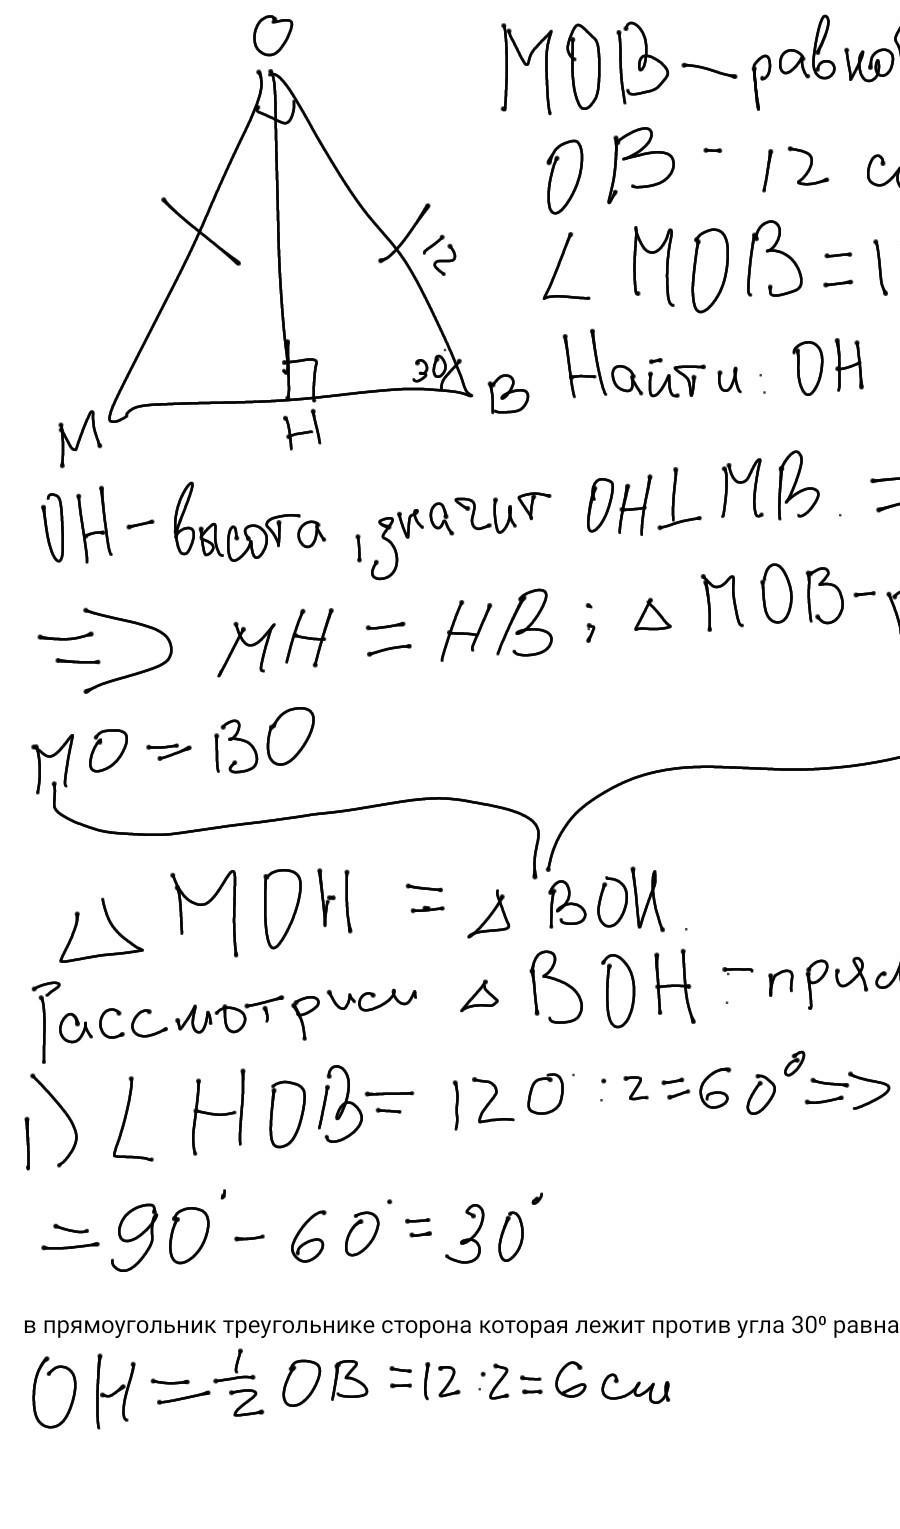 O
МОВ — равно
OB - 12 с
12
∠ MOB = 1
30°
Найти: OH
M
H
B
OH - высота, значит OH⊥MB. =
=> MH = HB ; △ MOB - р
MO = BO
△ MOH = △ BOH.
Рассмотрим △ BOH - прям
1) ∠ HOB = 120° : 2 = 60° =>
= 90° - 60° = 30°
в прямоугольник треугольнике сторона которая лежит против угла 30⁰ равна
OH = 1/2 OB = 12 : 2 = 6 см